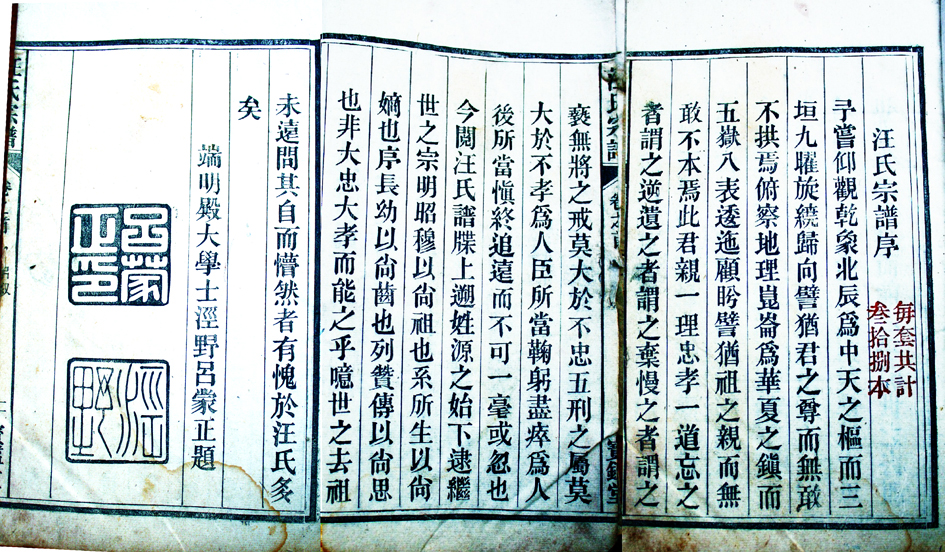 每套共計
叄拾捌本
汪氏宗譜序
予嘗仰觀乾象北辰爲中天之樞而三
垣九曜旋繞歸向譬猶君之尊而無敢
不拱焉俯察地理崑崙爲華夏之鎮而
五嶽八表逶迤顧盻譬猶祖之親而無
敢不本焉此君親一理忠孝一道忘之
者謂之逆遺之者謂之棄慢之者謂之
褻無將之戒莫大於不忠五刑之屬莫
大於不孝爲人臣所當鞠躬盡瘁爲人
後所當愼終追遠而不可一毫或忽也
今閱汪氏譜牒上遡姓源之始下逮繼
世之宗明昭穆以尙祖也系所生以尙
嫡也序長幼以尙齒也列贊傳以尙思
也非大忠大孝而能之乎噫世之去祖
未遠問其自而懵然者有愧於汪氏多
矣
端明殿大學士涇野呂蒙正題
呂蒙正印
涇野
汪氏宗譜